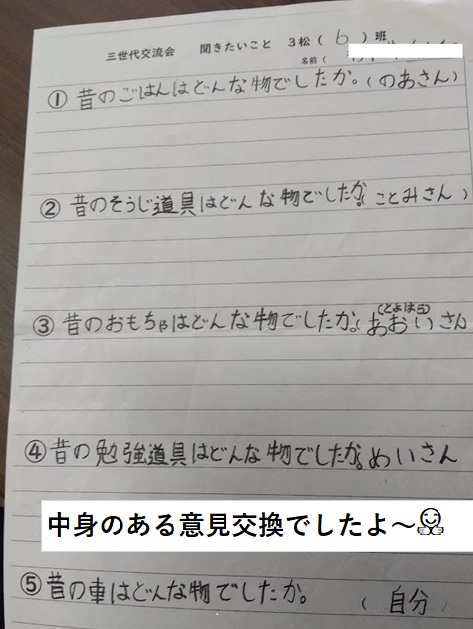 三世代交流会 聞きたいこと 3松(6)班
名前(
① 昔のごはんはどんな物でしたか。(のあさん)
② 昔のそうじ道具はどんな物でしたか。(ことみさん)
(とよはら)
③ 昔のおもちゃはどんな物でしたか。(あおいさん
④ 昔の勉強道具はどんな物でしたか。めいさん
中身のある意見交換でしたよ～
⑤ 昔の車はどんな物でしたか。(自分)